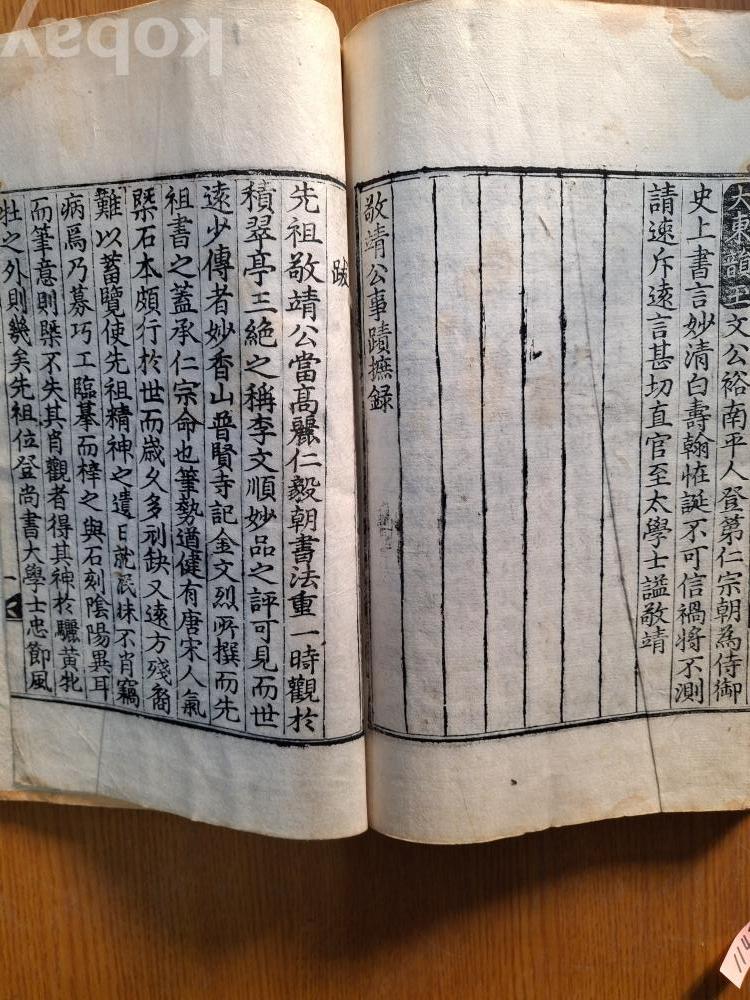 大東韻玉文公裕南平人登第仁宗朝爲侍御
史上書言妙清白壽翰恠誕不可信禍將不測
請速斥遠言甚切直官至太學士謚敬靖
敬靖公事蹟摭錄
跋
先祖敬靖公當高麗仁毅朝書法重一時觀於
積翠亭三絶之稱李文順妙品之評可見而世
遠少傳者妙香山普賢寺記金文烈所撰而先
祖書之蓋承仁宗命也筆勢遒健有唐宋人氣
槩石本頗行於世而歲久多刓缺又遠方殘裔
難以蓄覽使先祖精神之遺日就泯昧不肖竊
病焉乃募巧工臨摹而梓之與石刻陰陽異耳
而筆意則槩不失其肖觀者得其神於驪黃牝
牡之外則幾矣先祖位登尚書大學士忠節風
一
kobay